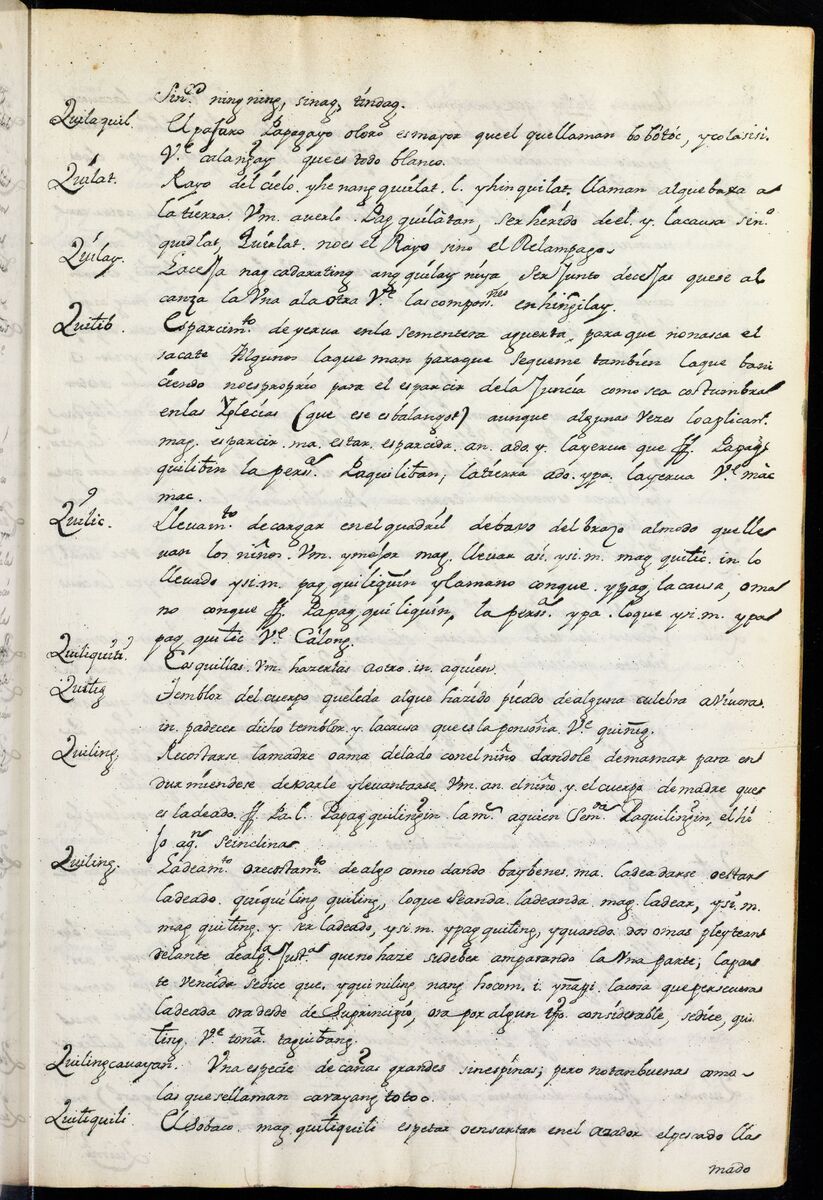 Sin.co ningning, sinag, tindag.
Quilaquil. El pajaro Papagayo oloro es mayor que el que llaman bobôtòc, y colasisi.
V.e calangay que es todo blanco.
Quilat. Rayo del cielo. yhe nang quilat. l. yhinquilat. llaman alque baxa a
la tierra. Vm. averlo. Pag quilàtan, ser herido de el. y. la causa sin.o
quidlat, Quirlat. no es el Rayo sino el Relampago.
Quilay. La ceja nag cadarating ang quilay niya ser junto de cejas que se al
canza la Vna ala otra V.e las compos.nes en hingilay.
Quilib. Esparcim.to de yerva en la sementera aguerta, para que no nasca el
sacate Algunos la queman para que se queme tambien la que ban i
ciendo no es proprio para el esparcir de la Juncia como sea costumbra
en las Yglecias (que ese es balangot) aunque algunas vezes lo aplican.
mag. esparcir. ma. estar. esparcida. an. ado. y. la yerva que ff. Papag
quilibin la pers.a Paquiliban; la tierra ado. ypa. la yerva V.e màc
mac.
Quilic. Llevam.to de cargar en el quadril debaxo del brazo al modo que lle
van los niños. Vm. y mejor mag. llevar asi. ysi. m. mag quilic. in. lo
llevado ysi. m. pag quiliquin y la mano con que. ypag, la causa, o ma
no con que ff. Papag quiliquin, la pers.a ypa. lo que ysi. m. ypa
pag quilic V.e Calong.
Quiliquiti. Cosquillas. Vm. hazerlas a otro. in. aquien.
Quilig Temblor del cuerpo que le da alque ha sido picado de alguna culebra o Vivora.
in. padecer dicho temblor. y. la causa que es la ponsoña. V.e quinig.
Quiling. Recostarse la madre o ama de lado con el niño dandole de mamar para en
durmiendose dexarle y levantarse. Vm. an. el niño. y. el cuerpo de madre que
es ladeado. ff. Pa. l. Papag quilingin la m.e aquien Sem.a Paquilingin, el hi
jo aq.n se inclina.
Quiling. Ladeam.to o recostam.to de algo como dando baybenes. ma. ladeadarse o estar
ladeado. quiquiling quiling, lo que se anda. ladeanda. mag. ladear, y si. m.
mag quiling. y. ser ladeado, ysi. m. ypag quiling, y quando. dos o mas pleytean
delante de alg.a Just.a que no haze su deber amparando la Vna parte; la par
te vencida se dice que. yquiniling nang hocom. i. yñayi. la cosa que persevera
ladeada ora desde de Su principio, ora por algun tpo. considerable, se dice, qui
ling. V.e tona. taguibang.
Quilingcavayan. Vna especie de cañas grandes sin espinas; pero no tan buenas como
las que se llaman cavayang totoo.
Quiliquili. El sobaco. mag. quiliquili espetar o ensartar en el azador el pescado lla
mado